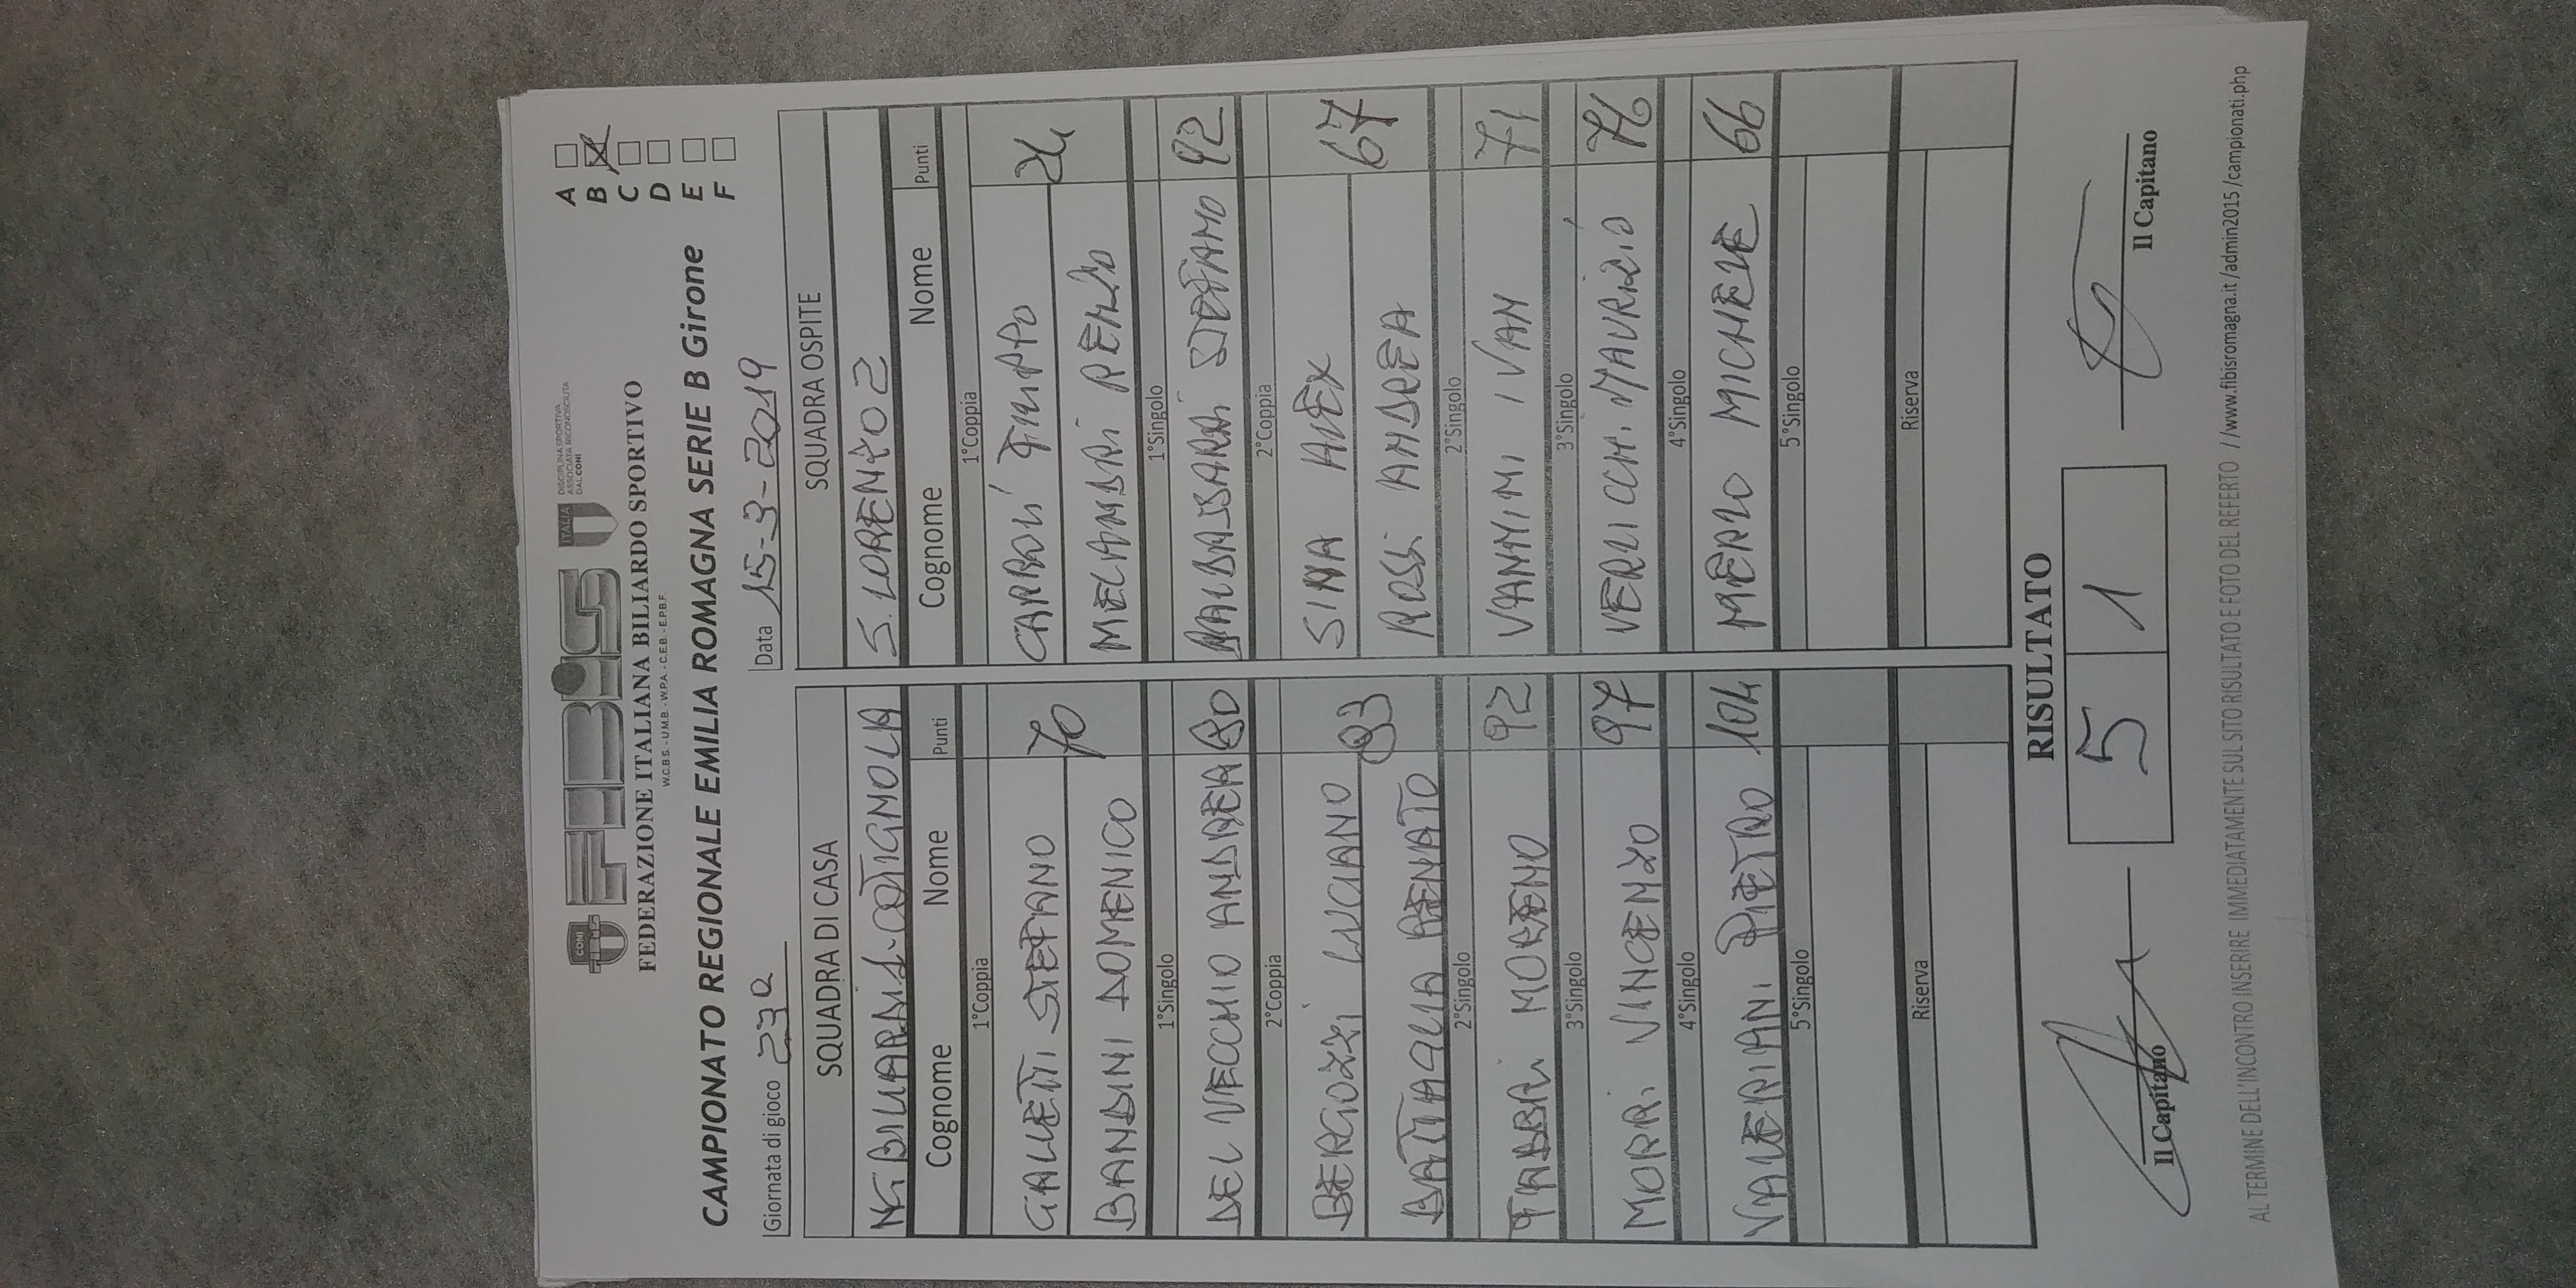 CONI
FIBiS
ITALIA
DISCIPLINA SPORTIVA
ASSOCIATA RICONOSCIUTA
DAL CONI
FEDERAZIONE ITALIANA BILIARDO SPORTIVO
W.C.B.S. - U.M.B. - W.P.A. - C.E.B. - E.P.B.F.
CAMPIONATO REGIONALE EMILIA ROMAGNA SERIE B Girone
A
B X
C
D
E
F
Giornata di gioco 23a Data 15-3-2019
SQUADRA DI CASA SQUADRA OSPITE
COTIGNOLA S. LORENZO 2
Cognome Nome Punti Cognome Nome Punti
1°Coppia 1°Coppia
GALLETTI STEFANO 70 CARROLI FILIPPO 24
BANDINI DOMENICO MELANDRI RENZO
1°Singolo 1°Singolo
DEL VECCHIO ANDREA 80 BALDASSARRI STEFANO 92
2°Coppia 2°Coppia
BERGOZZI LUCIANO 93 SINA ALEX 67
BATTAGLIA RENATO ROSSI ANDREA
2°Singolo 2°Singolo
FABBRI MORENO 92 VANNINI IVAN 71
3°Singolo 3°Singolo
MORRI VINCENZO 97 VERLICCHI MAURIZIO 76
4°Singolo 4°Singolo
VALERIANI PIETRO 104 MERLO MICHELE 66
5°Singolo 5°Singolo
Riserva Riserva
RISULTATO
5 1
Il Capitano Il Capitano
AL TERMINE DELL'INCONTRO INSERIRE IMMEDIATAMENTE SUL SITO RISULTATO E FOTO DEL REFERTO //www.fibisromagna.it/admin2015/campionati.php